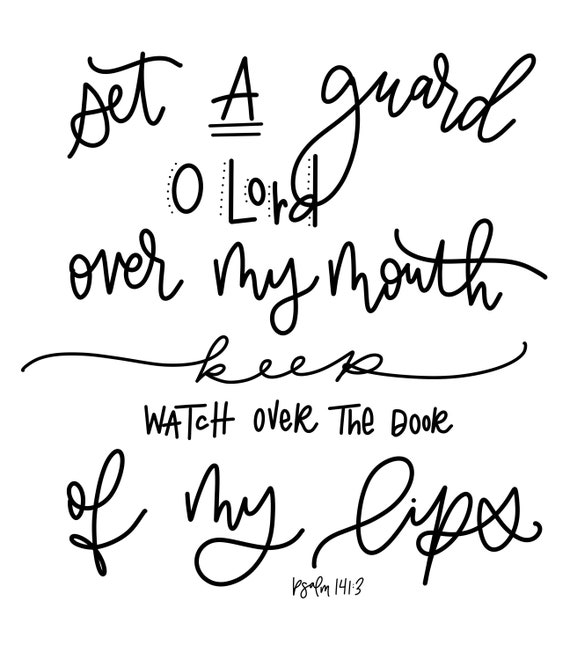 set A guard
O Lord
over my mouth
keep
WATcH OVER The DOOR
of my lips
psalm 141:3